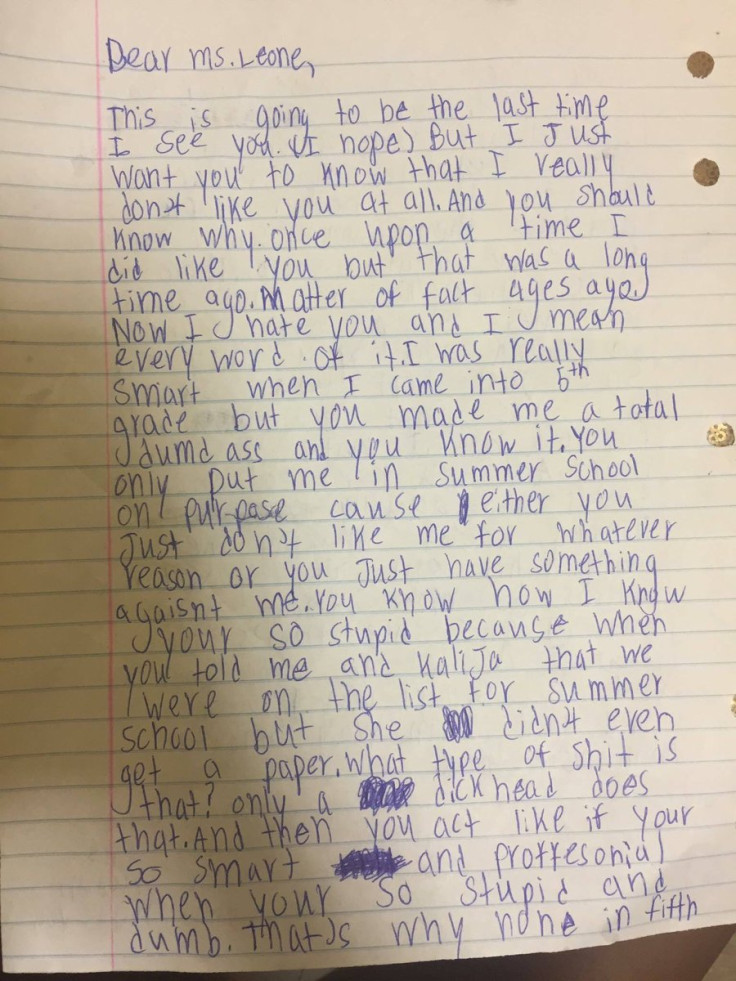 Dear Ms. Leone,
This is going to be the last time
I see you. (I hope) But I Just
want you to know that I really
don't like you at all. And you should
know why. once upon a time I
did like you but that was a long
time ago. Matter of fact ages ago.
Now I hate you and I mean
every word of it. I was really
smart when I came into 5th
grade but you made me a total
dumd ass and you know it. You
only put me in summer school
on purpose cause either you
Just don't like me for whatever
reason or you Just have something
agaisnt me. You know how I know
your so stupid because when
you told me and Kalija that we
were on the list for summer
school but she didn't even
get a paper. What type of shit is
that? only a dick head does
that. And then you act like if your
so smart and proffesonial
when your so stupid and
dumb. that's why none in fifth